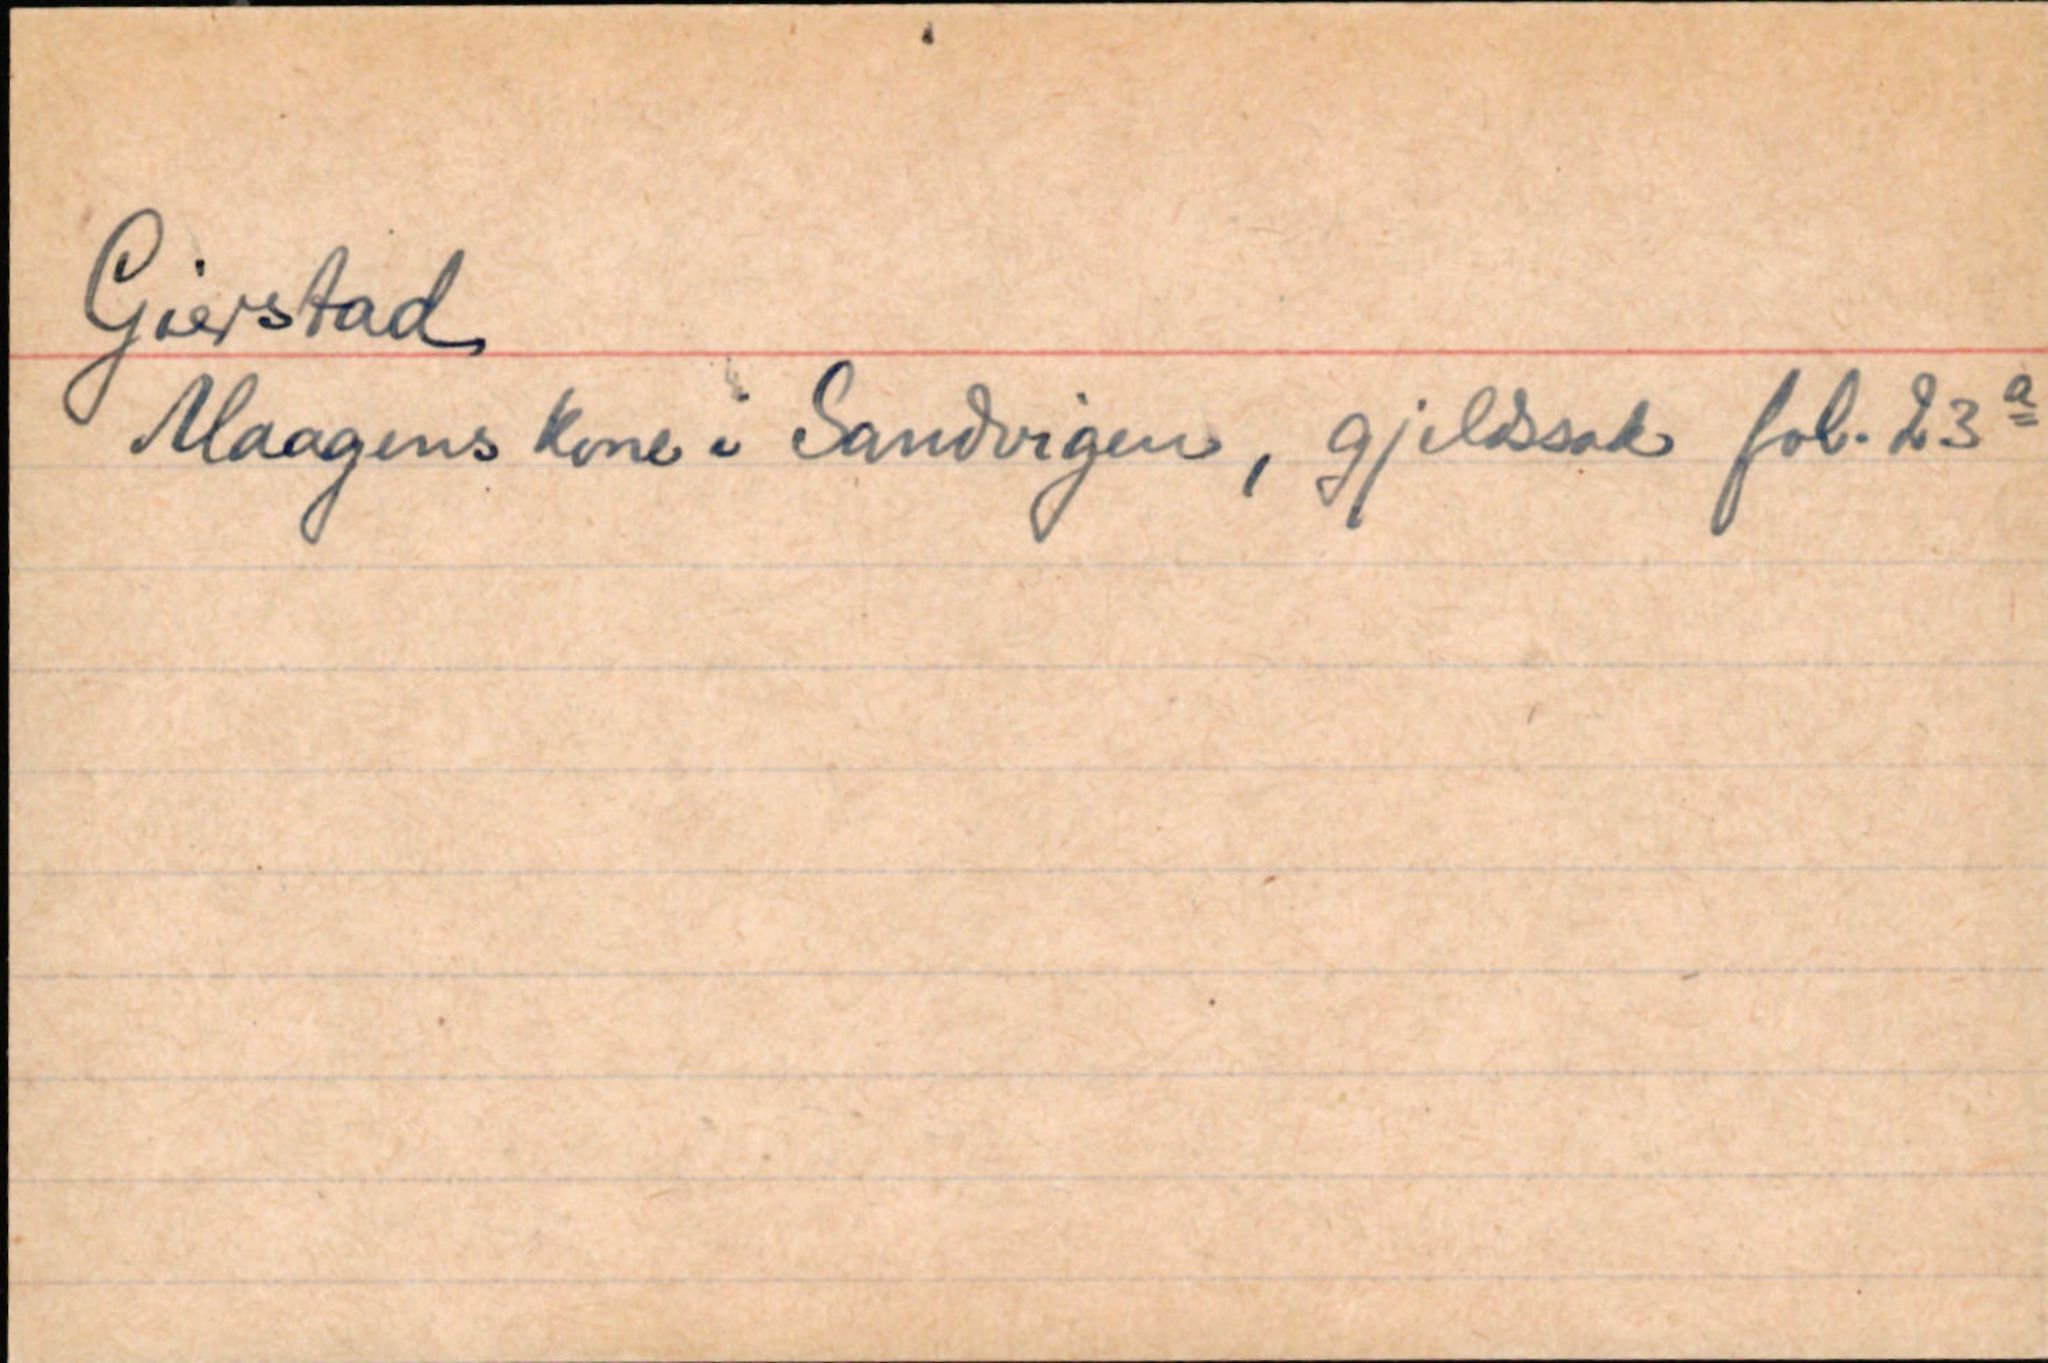 Gierstad
Maagens kone i Sandvigen, gjeldssak fol. 23a